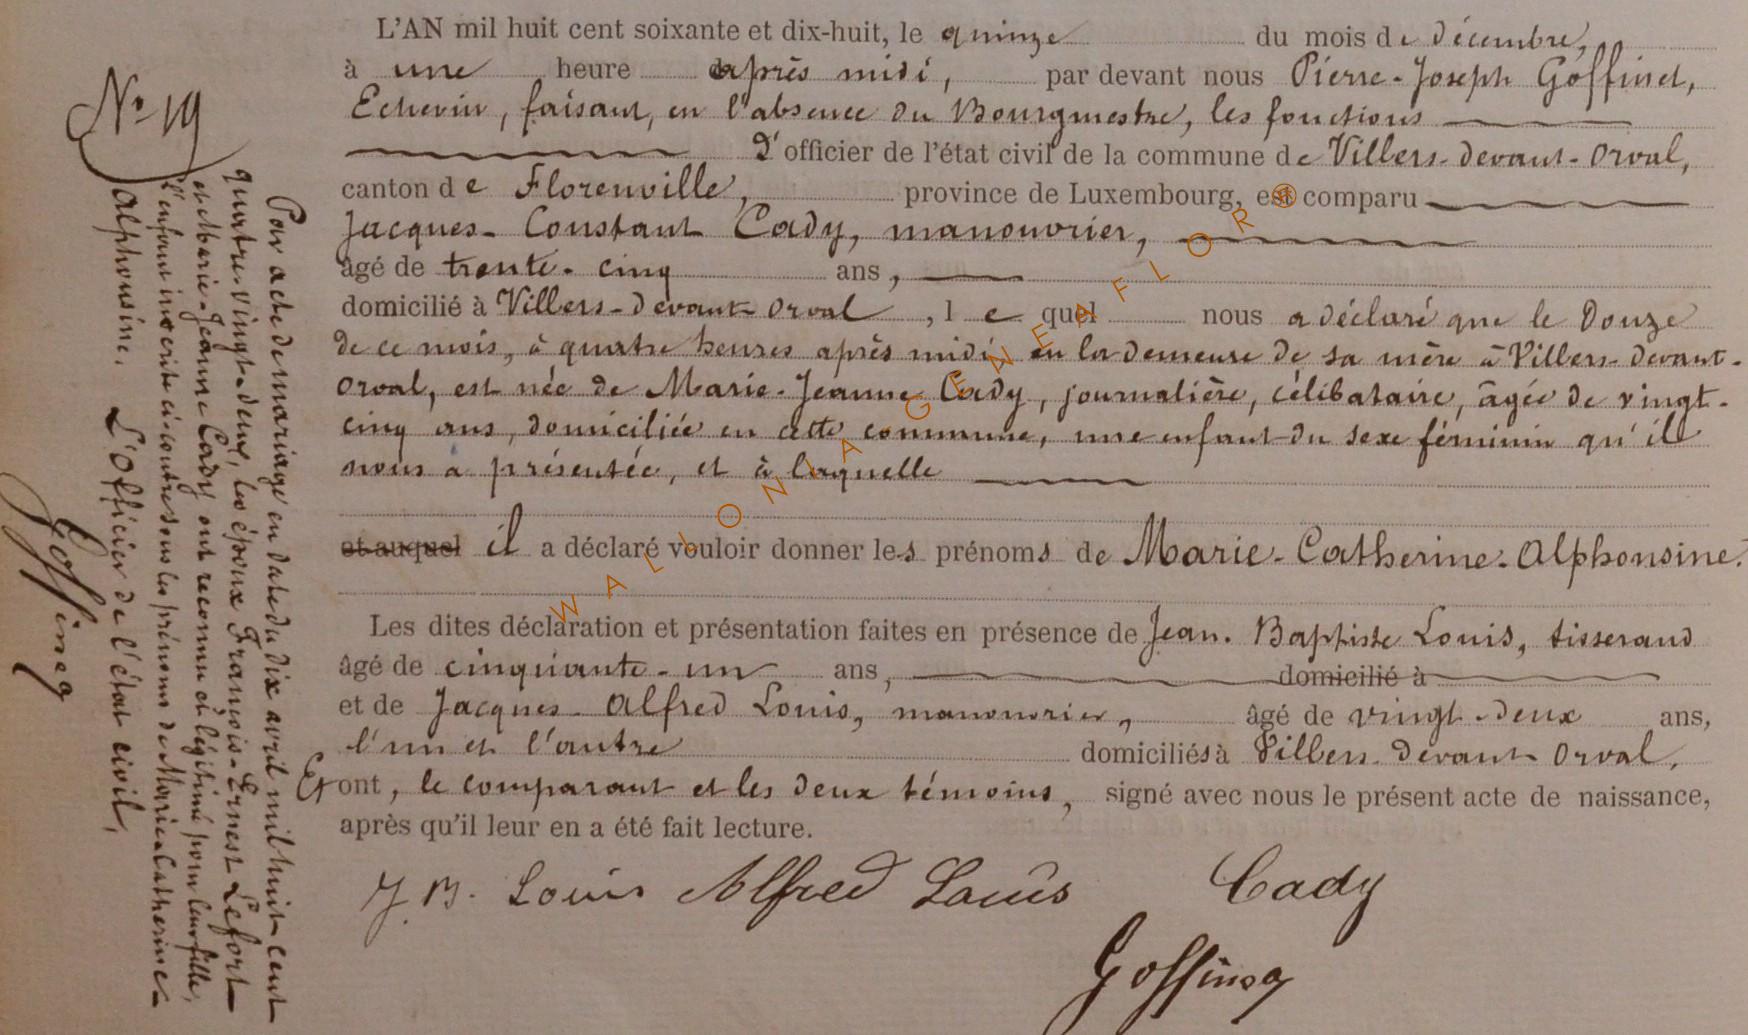 L'AN mil huit cent soixante et dix-huit, le quinze du mois de décembre,
à une heure après midi, par devant nous Pierre-Joseph Goffinet,
Echevin, faisant, en l'absence du Bourgmestre, les fonctions
D'officier de l'état civil de la commune de Villers-devant-Orval,
canton de Florenville, province de Luxembourg, est comparu
Jacques-Constant Cady, manouvrier,
âgé de trente-cinq ans,
domicilié à Villers-devant-Orval, lequel nous a déclaré que le Douze
de ce mois, à quatre heures après midi en la demeure de sa mère à Villers-devant-
Orval, est née de Marie-Jeanne Cady, journalière, célibataire, âgée de vingt-
cinq ans, domiciliée en cette commune, une enfant du sexe féminin qu'il
nous a présentée, et à laquelle
et auquel il a déclaré vouloir donner les prénoms de Marie-Catherine-Alphonsine.
Les dites déclaration et présentation faites en présence de Jean-Baptiste Louis, tisserand
âgé de cinquante-un ans, domicilié à
et de Jacques-Alfred Louis, manouvrier, âgé de vingt-deux ans,
l'un et l'autre domiciliés à Villers-devant-Orval.
Et ont, le comparant et les deux témoins, signé avec nous le présent acte de naissance,
après qu'il leur en a été fait lecture.
J. B. Louis Alfred Louis Cady
Goffinet
N° 19
Par acte de mariage en date du dix avril mil huit cent
quatre-vingt-deux, les époux François-Ernest Lefort
et Marie-Jeanne Cady ont reconnu et légitimé pour leur fille,
l'enfant inscrite ci-contre sous les prénoms de Marie-Catherine-
Alphonsine. L'Officier de l'état civil,
Goffinet
WALLONIA GENEAFLOR®